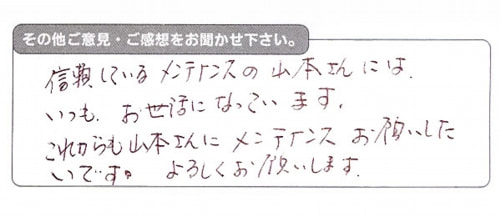 その他ご意見・ご感想をお聞かせ下さい。
信頼しているメンテナンスの山本さんには、
いつも、お世話になっています。
これからも山本さんにメンテナンスお願いした
いです。よろしくお願いします。